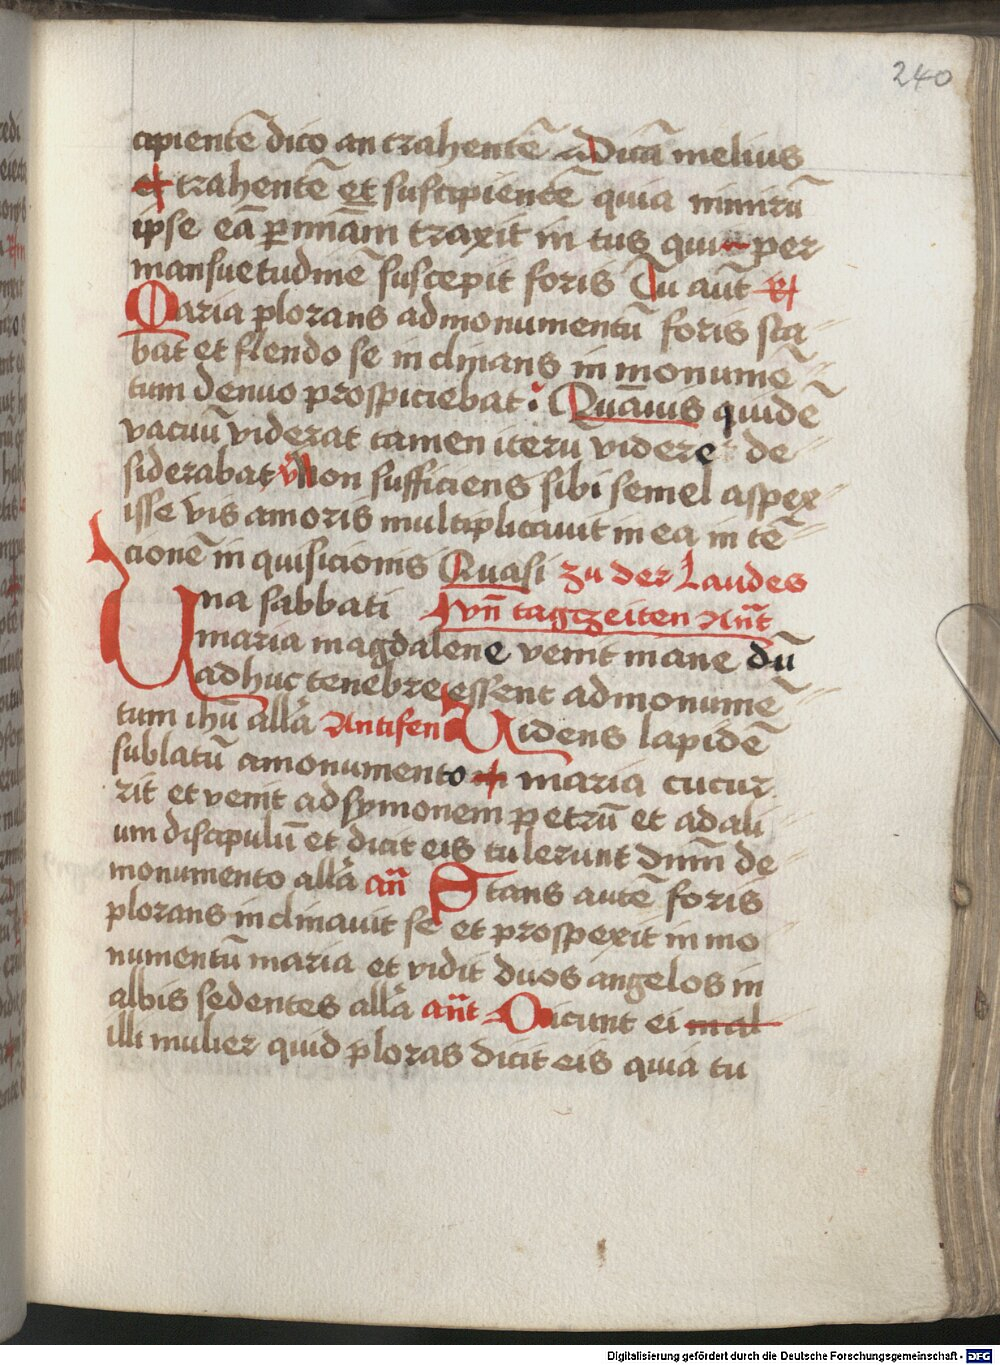 240
cipientē dico an trahentē Dicā melius
et trahentē et suscipientē quia nimirū
ipse eā ꝑ mīam traxit in tus qui per
mansuetudinē suscepit foris Tu aūt ℟
Maria plorans ad monumentū foris sta
bat et flendo se in clinans in monumē
tum denuo prospiciebat : Quāuis quidē
vacuū viderat tamen iterū videre de
siderabat v̄ Non sufficiens sibi semel aspex
isse vis amoris multiplicauit in ea in tē
cionē in quisicionis Quasi zu der Laudes
vn̄ tagczeiten An̄t
Una sabbati
maria magdalene venit mane dū
adhuc tenebre essent ad monumē
tum ihū allā Antifen Uidens lapidē
sublatū a monumento maria cucur
rit et venit ad symonem petrū et ad ali
um discipulū et dicit eis tulerunt dnm̄ de
monumento allā an̄ Stans autē foris
plorans inclinauit se et prospexit in mo
numentū maria et vidit duos angelos in
albis sedentes allā an̄t Dicunt ei mal
illi mulier quid ploras dicit eis quia tu
Digitalisierung gefördert durch die Deutsche Forschungsgemeinschaft - DFG